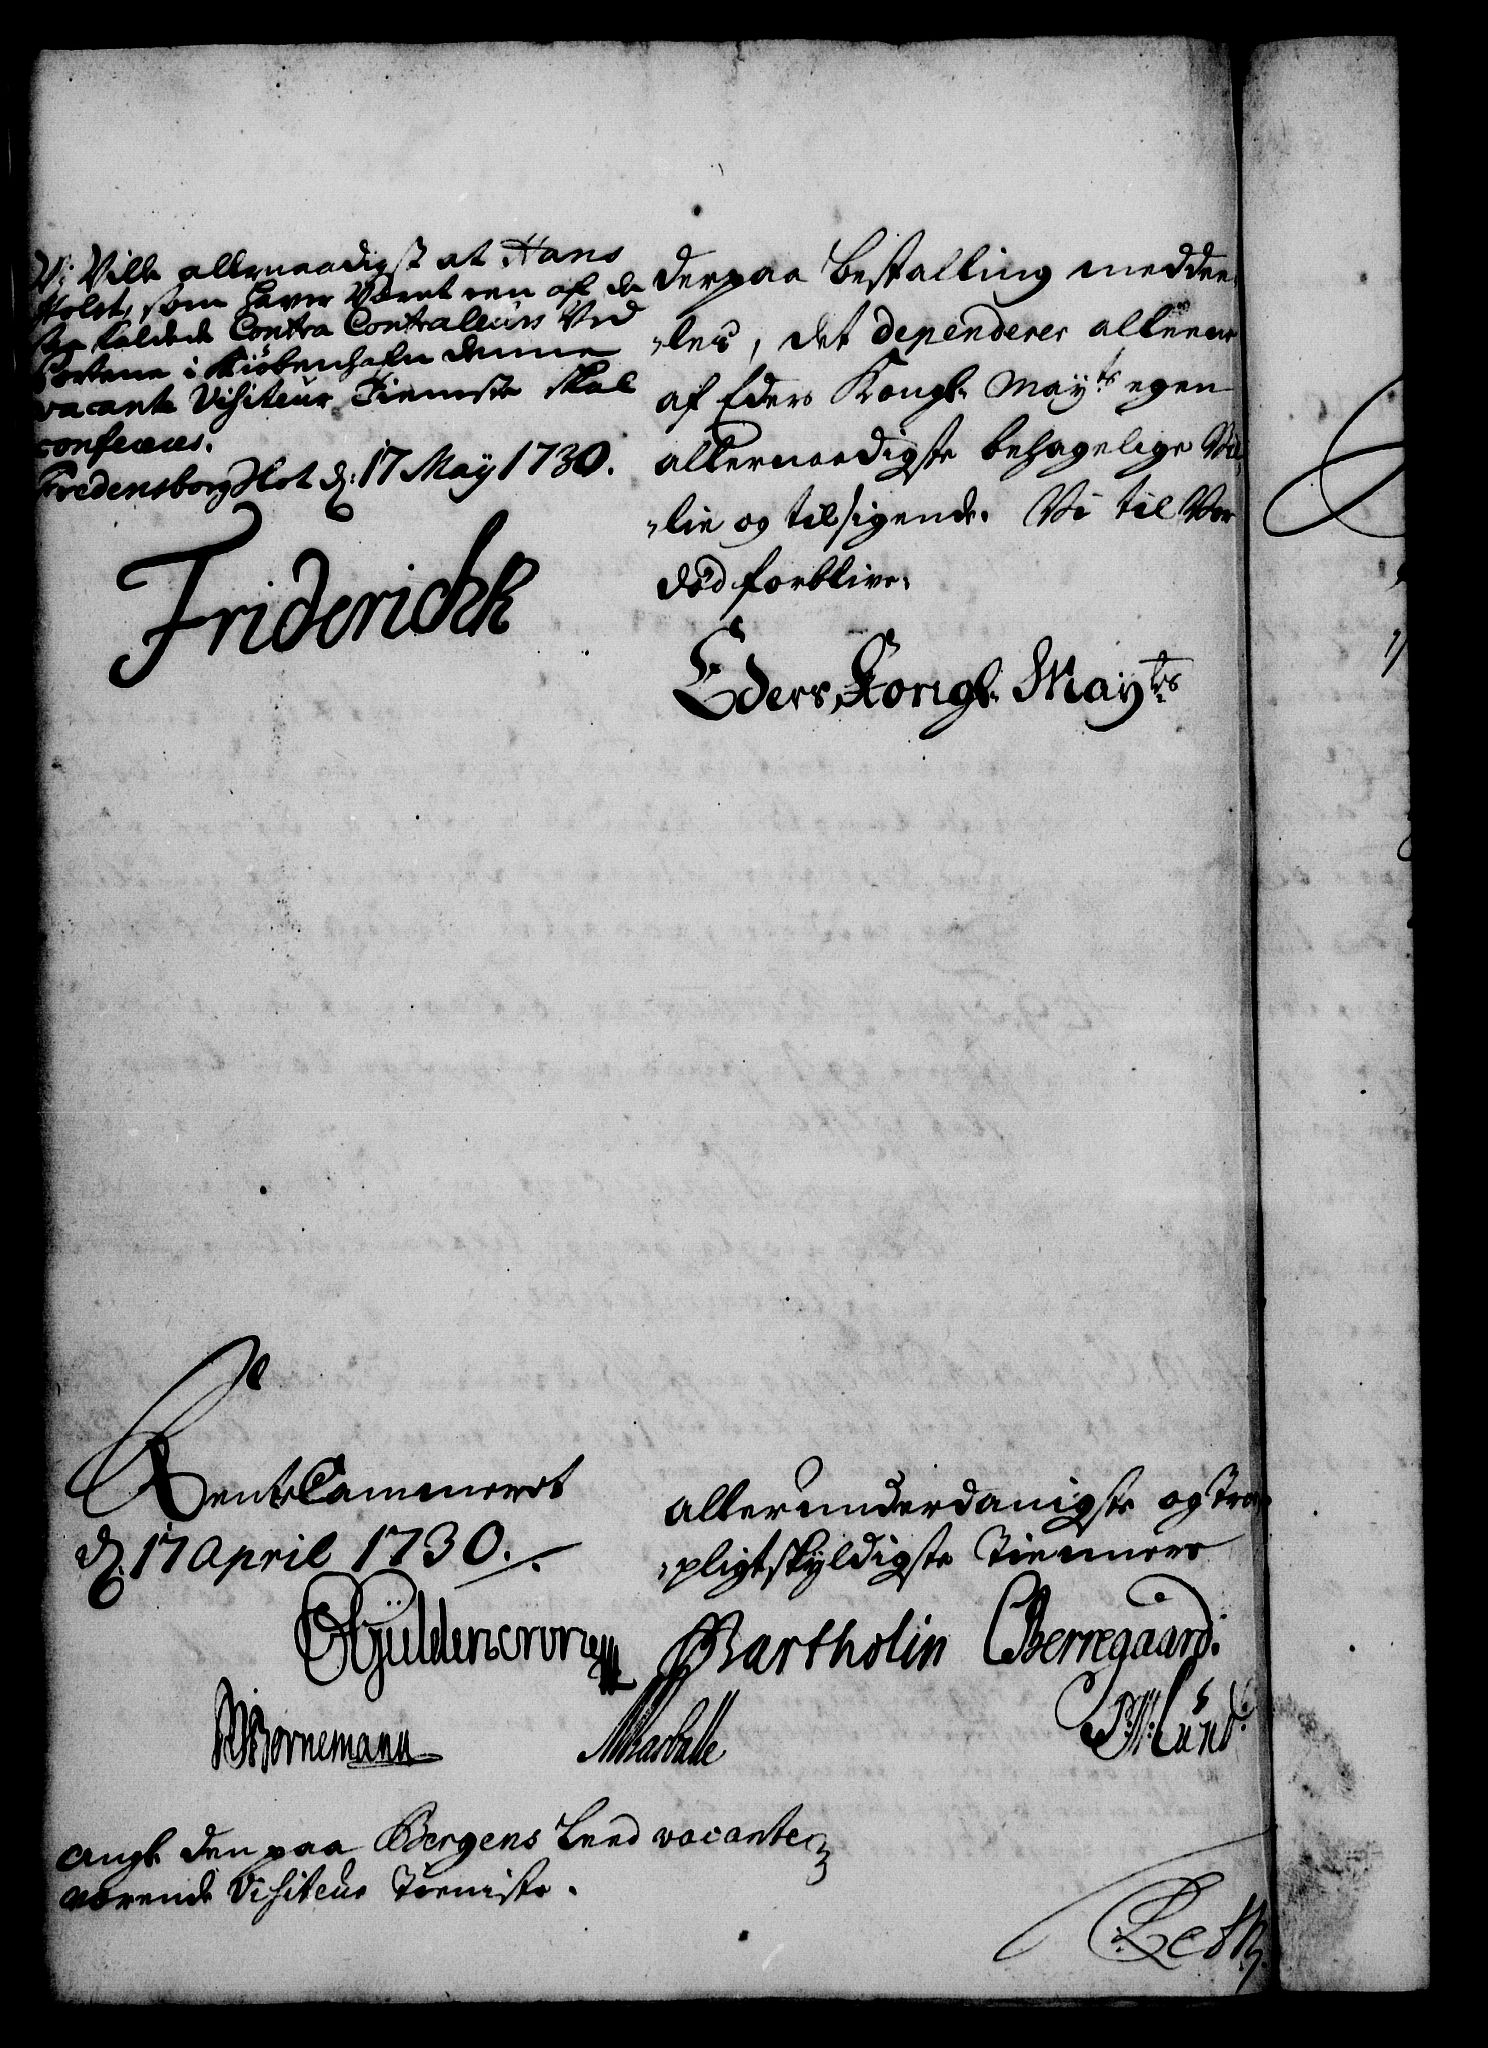 Vi Ville allernaadigst at Hans
Holst, som haver Været een af de
saa kaldede Contra Contraleurs Ved
Portene i Kiöbenhafn denne
vacante Visiteur Tieniste skal
confereres.
Fredensborg Slot d: 17 May 1730.
Friderich R
derpaa Bestalling meddee-
-les, det dependerer alleene
af Eders Kongl. Mayts egen
allernaadigste behagelige Vil-
-lie og tilsigende. Vi til Vor
död forblive.
Eders Kongl. Mayts
RenteCammeret
d. 17 April 1730.
allerunderdanigste og Troe
-pligtskyldigste Tiennere
Güldencrone
Bartholin
Berregaard.
Bornemann
Lund
angl. den paa Bergens Leed vacante
værende Visiteur Tieniste.